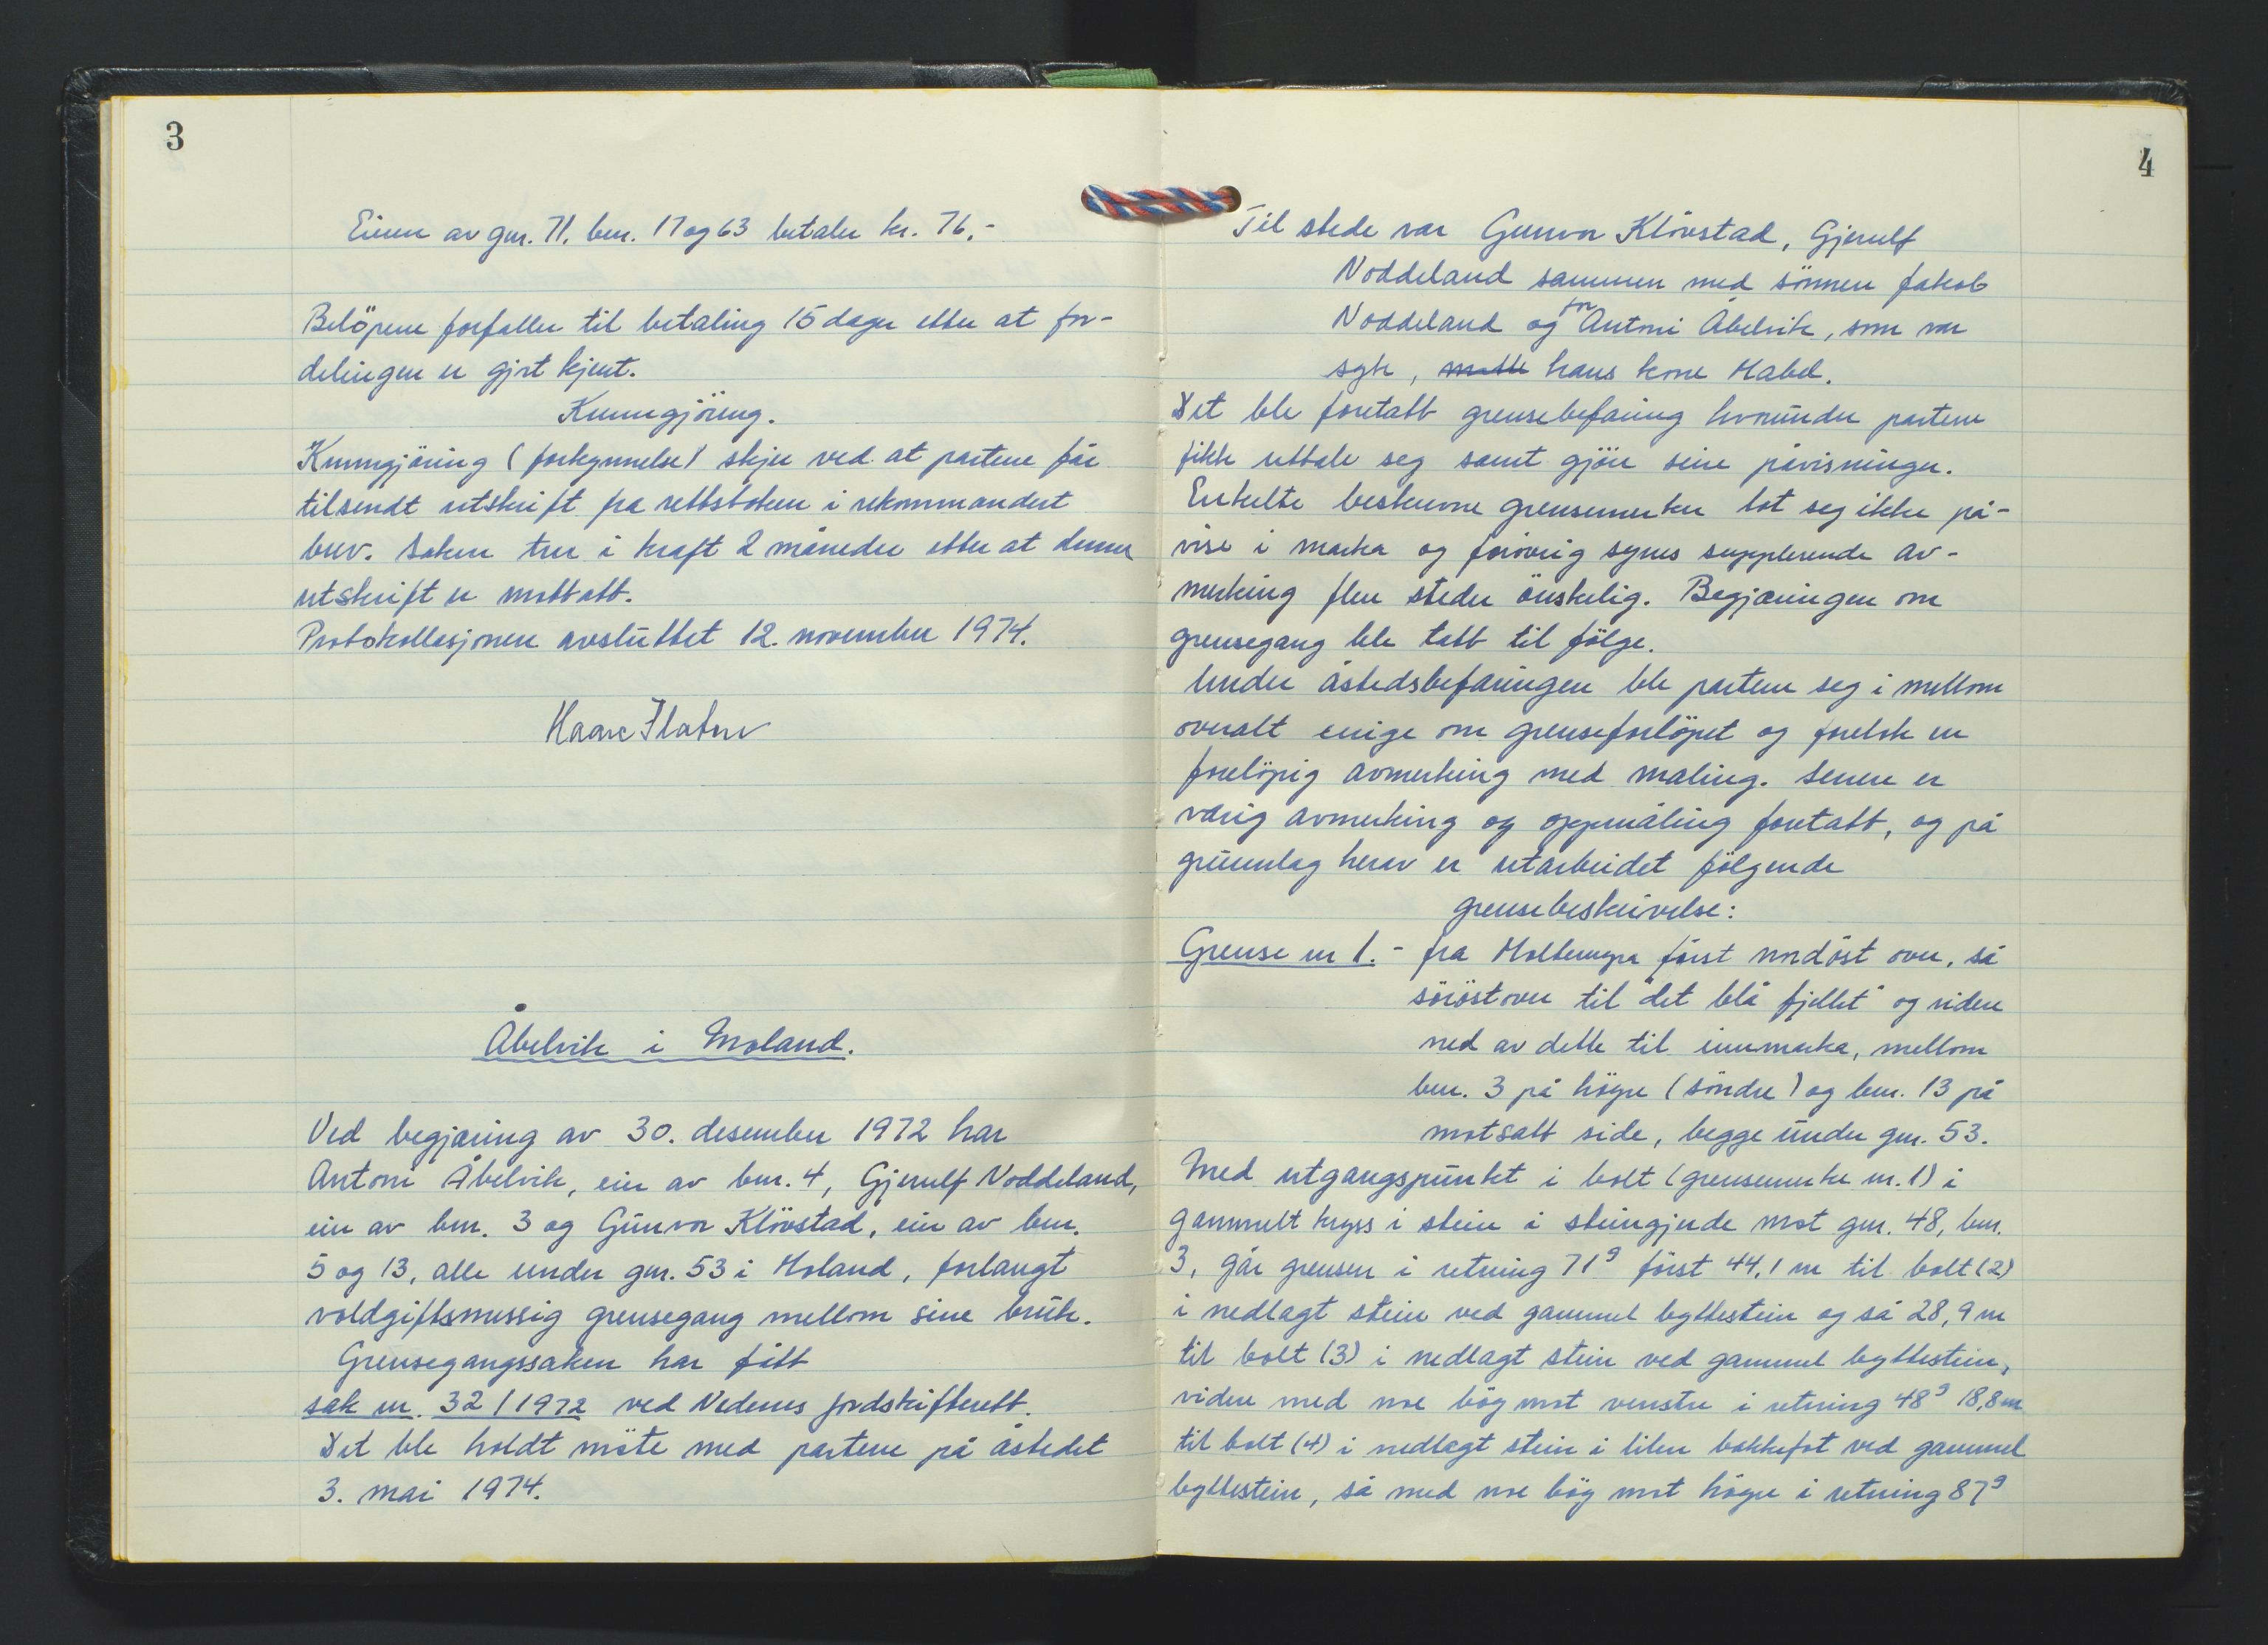 3
Eieren av gnr. 71, bnr. 17 og 63 betaler kr. 76,-
Belöpene forfaller til betaling 15 dager etter at for-
delingen er gjort kjent.
Kunngjöring.
Kunngjöring (forkynnelse) skjer ved at partene får
tilsendt utskrift fra rettsboken i rekommandert
brev. Saken trer i kraft 2 måneder etter at denne
utskrift er mottatt.
Protokollasjonen avsluttet 12. november 1974.
Åbelvik i Moland.
Ved begjæring av 30. desember 1972 har
Antoni Åbelvik, eier av bnr. 4, Gjerulf Noddeland,
eier av bnr. 3 og Gunvor Klövstad, eier av bnr.
5 og 13, alle under gnr. 53 i Moland, forlangt
voldgiftsmessig grensegang mellom sine bruk.
Grensegangssaken har fått
sak nr. 32/1972 ved Nedenes jordskifterett.
Det ble holdt möte med partene på åstedet
3. mai 1974.
4
Til stede var Gunvor Klövstad, Gjerulf
Noddeland sammen med sönnen Jakob
Noddeland og for Antoni Åbelvik, som var
syk, møtte hans kone Mabel.
Det ble foretatt grensebefaring hvorunder partene
fikk uttale seg samt gjöre sine påvisninger.
Enkelte beskrevne grensemerker lot seg ikke på-
vise i marka og forövrig synes supplerende av-
merking flere steder önskelig. Begjæringen om
grensegang ble tatt til fölge.
Under åstedsbefaringen ble partene seg i mellom
overalt enige om grenseforlöpet og foretok en
forelöpig avmerking med maling. Senere er
varig avmerking og oppmåling foretatt, og på
grunnlag herav er utarbeidet fölgende
grensebeskrivelse:
Grense nr 1. - fra Moltemyra först nordöst over, så
söröstover til "det blå fjellet" og videre
ned av dette til innmarka, mellom
bnr. 3 på högre (söndre) og bnr. 13 på
motsatt side, begge under gnr. 53.
Med utgangspunkt i bolt (grensemerke nr. 1) i
gammelt kryss i stein i steingjerde mot gnr. 48, bnr.
3, går grensen i retning 71g först 44,1 m til bolt (2)
i nedlagt stein ved gammel byttestein og så 28,9 m
til bolt (3) i nedlagt stein ved gammel byttestein,
videre med noe bög mot venstre i retning 48g 18,8 m
til bolt (4) i nedlagt stein i liten bakkefot ved gammel
byttestein, så med noe bög mot högre i retning 87g